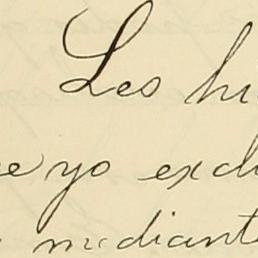 Les hi
e yo exclu
mediante